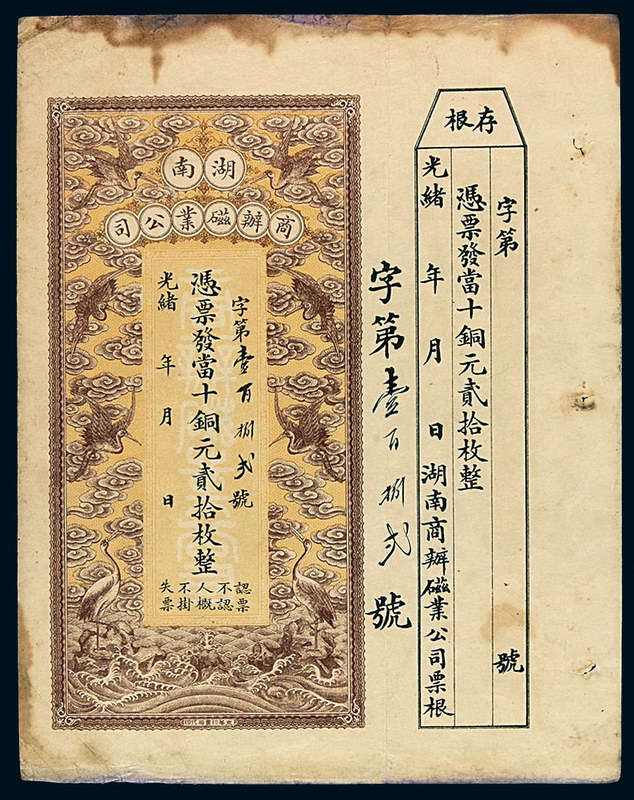 存根
字第 號
憑票發當十銅元貳拾枚整
光緒 年 月 日 湖南商辦磁業公司票根
字第壹百捌弍號
湖南
商辦磁業公司
字第壹百捌弍號
憑票發當十銅元貳拾枚整
光緒 年 月 日
認票
不認
人概
不掛
失票